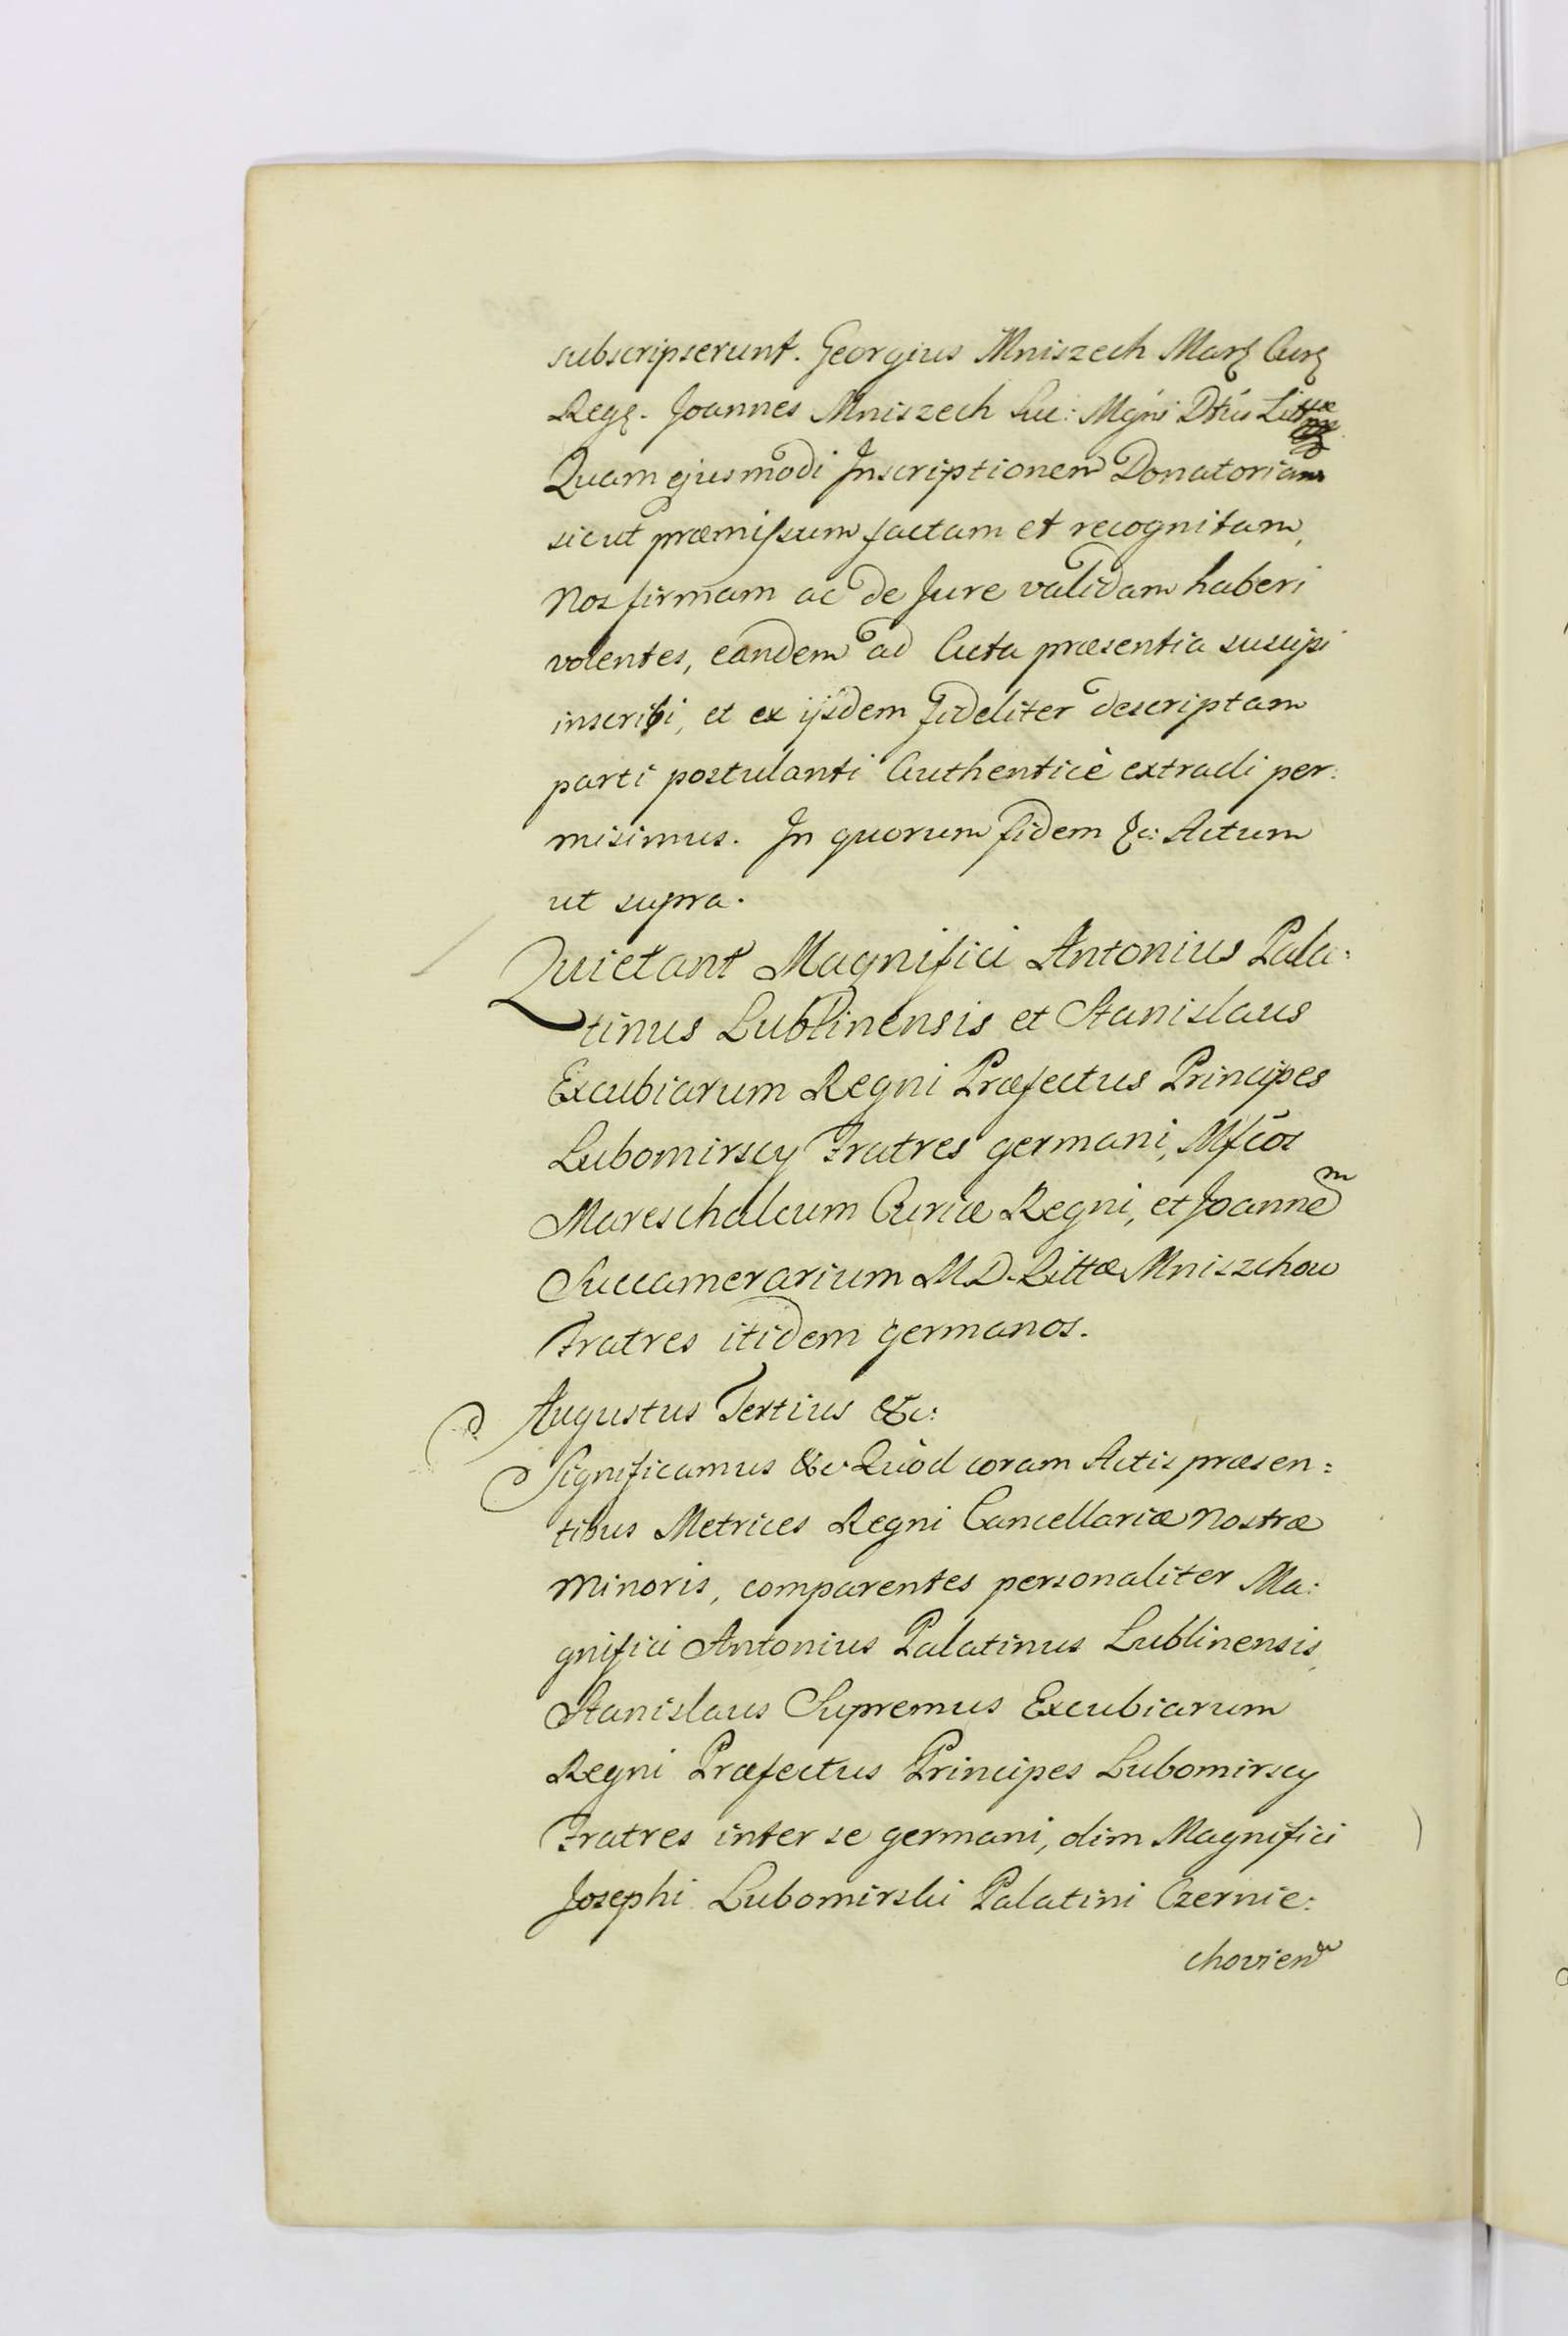 subscripserunt. Georgius Mniszech Marȩ Curȩ
Regȩ. Joannes Mniszech Suc: Mgni Dtûs Littuæ
Quam ejusmodi Inscriptionem Donatoriam
sicut præmissum factam et recognitam,
Nos firmam ac de Jure validam haberi
volentes, eandem ad Acta præsentia suscipi
inscribi, et ex ijsdem fideliter descriptam
parti postulanti Authenticè extradi per:
misimus. In quorum fidem &c: Actum
ut supra.
Quietant Magnifici Antonius Pala:
tinus Lublinensis et Stanislaus
Excubiarum Regni Præfectus Principes
Lubomirscy Fratres germani, Mfcos
Mareschalcum Curiæ Regni, et Joannem
Succamerarium M.D. Littæ Mniszchow
Fratres itidem germanos.
Augustus Tertius &c:
Significamus &c Quòd coram Actis præsen:
tibus Metrices Regni Cancellariæ Nostræ
Minoris, comparentes personaliter Ma:
gnifici Antonius Palatinus Lublinensis,
Stanislaus Supremus Excubiarum
Regni Præfectus Principes Lubomirscy
Fratres inter se germani, olim Magnifici
Josephi Lubomirski Palatini Czernie:
chovien